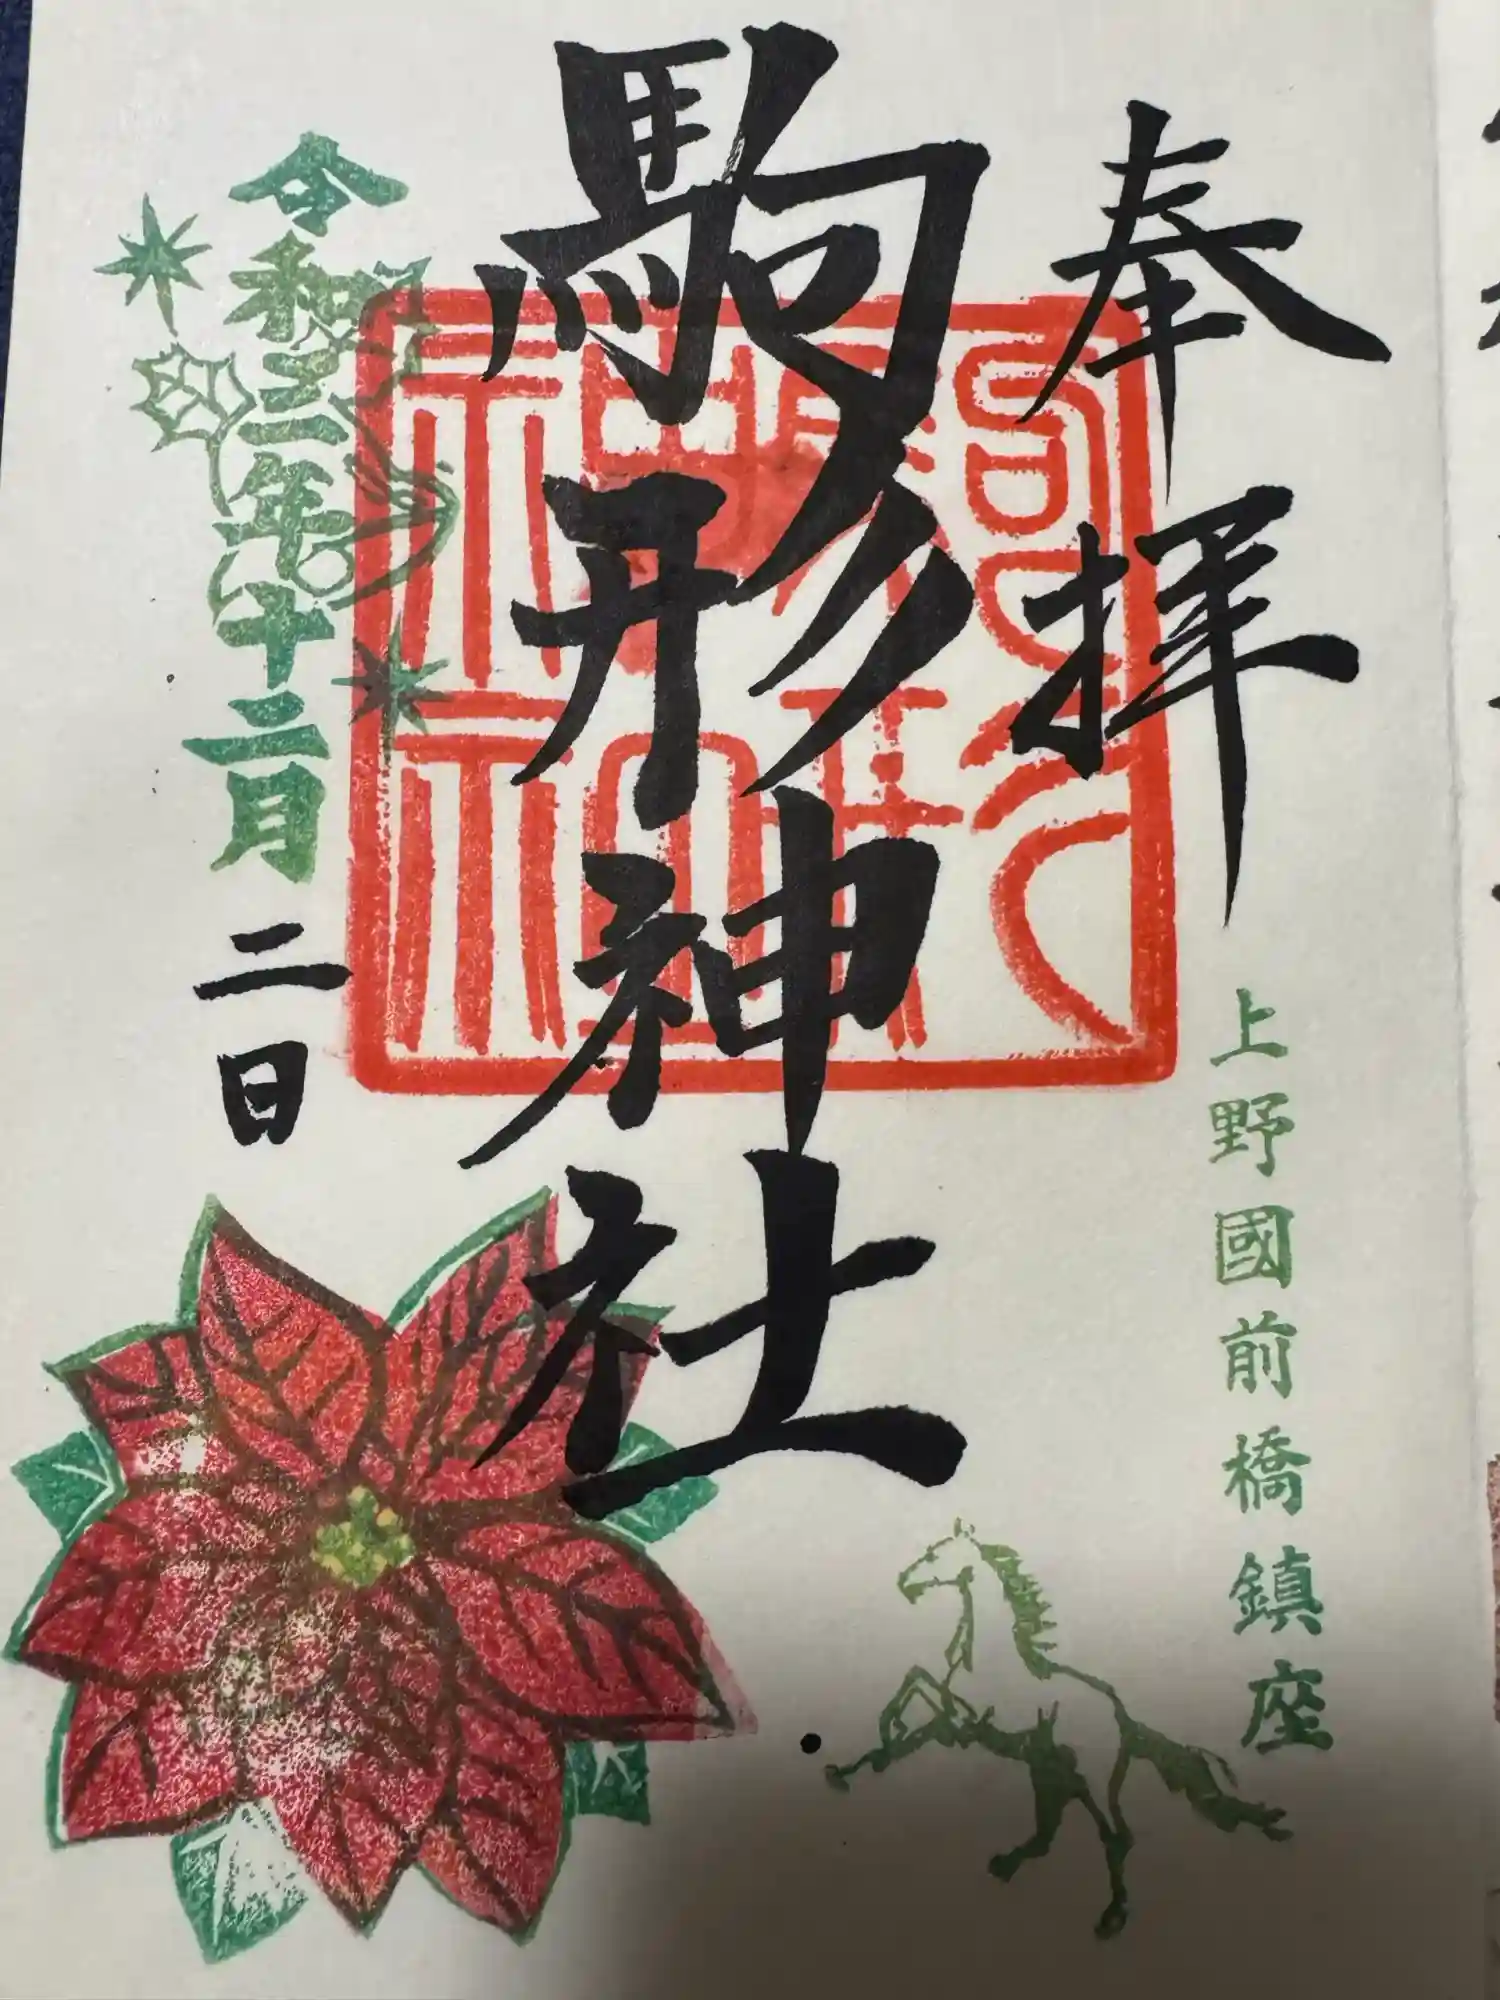 奉拝
上野國前橋鎮座
駒形神社
令和三年十二月
二日